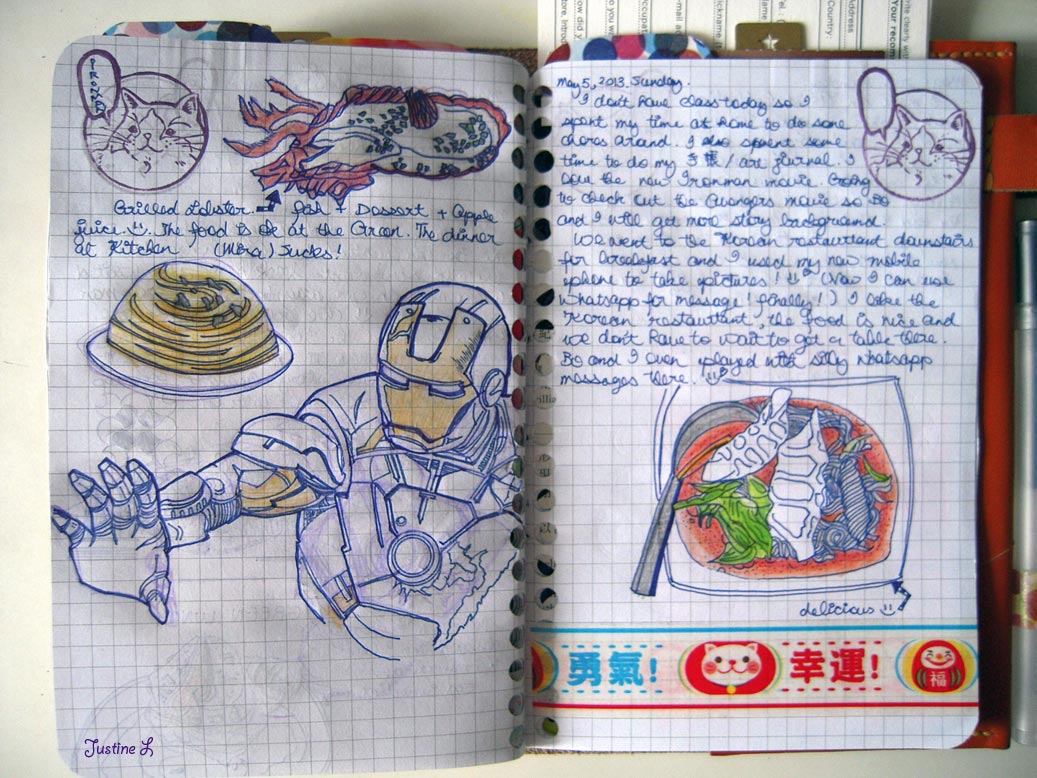 IRONMAN
Grilled Lobster fish + Dessert + Apple
juice. The food is ok at the Green. The dinner
at Kitchen (Mira) Sucks!
Justine L
May 5, 2013. Sunday.
I don't have class today so I
spent my time at home to do some
chores around. I also spent some
time to do my / art journal. I
saw the new Ironman movie. Going
to check out the Avengers movie so Bo
and I will get more story background.
We went to the Korean restaurant downstairs
for breakfast and I used my new mobile
phone to take pictures! (Now I can use
Whatsapp for message! finally!) I like the
Korean restaurant, the food is nice and
we don't have to wait to get a table there.
Bo and I even played with silly Whatsapp
messages there.
delicious
勇氣! 幸運! 福